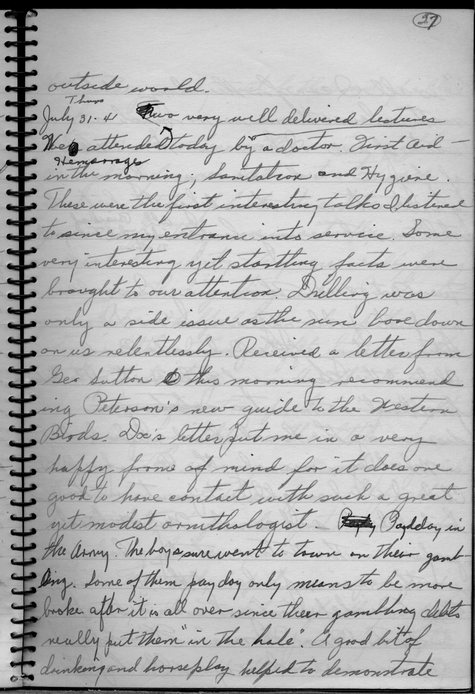 27
outside world.
Thurs
July 31-41 Two very well delivered lectures
We attended today by a doctor. First Aid -
Hemorrage
in the morning; Sanitation and Hygiene.
These were the first interesting talks I listened
to since my entrance into service. Some
very interesting yet startling facts were
brought to our attention. Drilling was
only a side issue as the sun bore down
on us relentlessly. Received a letter from
Geo Sutton this morning recommend
ing Peterson's new guide to the Western
Birds. Doc's letter put me in a very
happy frame of mind for it does one
good to have contact with such a great
yet modest ornithologist. Payday in
the Army. The boys sure went to town on their gamb-
ling. Some of them pay day only means to be more
broke after it is all over since their gambling debts
really put them "in the hole". A good bit of
drinking and horseplay helped to demonstrate